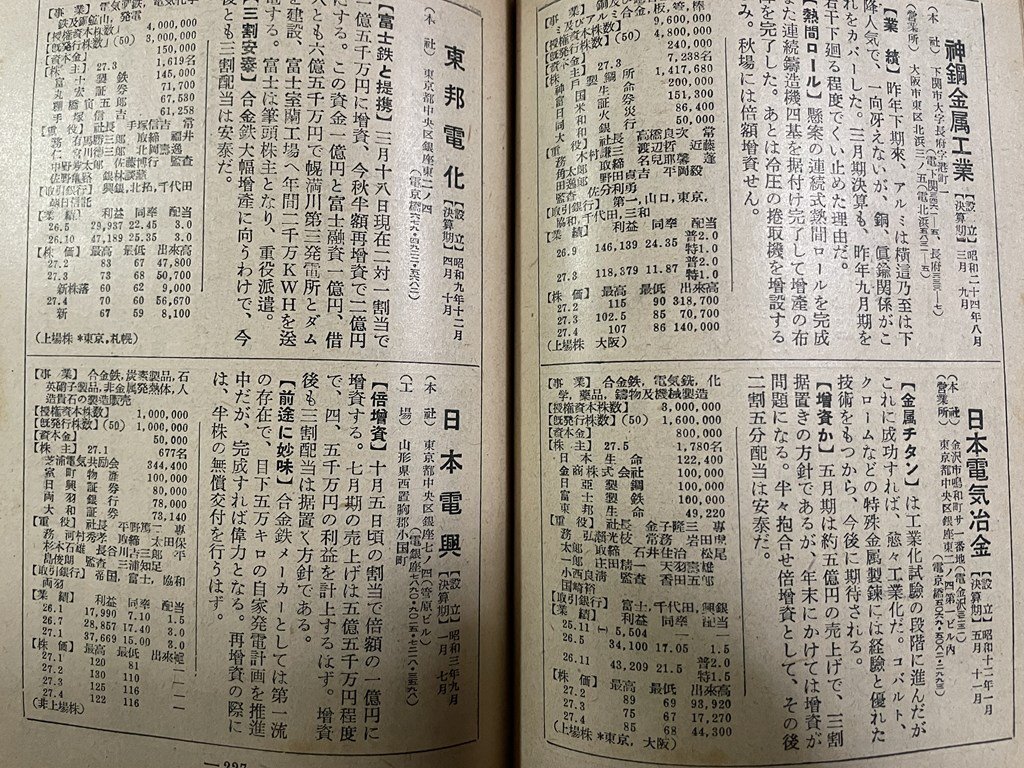 神鋼金属工業
【設立】昭和二十四年八月
【決算期】三月 九月
(本社) 下関市大字長府字港町
(営業所) 大阪市東区北浜三ノ五
【業績】昨年下期来、アルミは横這乃至は下
降人気で、一向冴えないが、銅、眞鍮関係がこ
れをカバーした。三月期決算も、昨年九月期を
若干下廻る程度でくい止めた理由だ。
【熱間ロール】懸案の連続式熱間ロールを完成
また連続鋳造機四基を据付け完了して増産の布
を完了した。あとは冷圧の捲取機を増設する
み。秋場には倍額増資せん。
4,800,000
240,000
27.3 7,238名
1,417,680
200,000
151,300
86,400
50,000
【取引銀行】第一,山口,東京,
協和,千代田,三和
【業績】 利益 同率 配当
26.9 146,139 24.35 普2.0 特1.0
27.3 118,379 11.87 普2.0 特1.0
【株価】 最高 最低 出来高
27.2 115 90 318,700
27.3 102.5 85 70,700
27.4 107 86 140,000
(上場株 大阪)
日本電気冶金
【設立】昭和十二年一月
【決算期】五月 十一月
(本社) 金沢市鳴和町サ一番地
(営業所) 東京都中央区銀座東一ノ四
【金属チタン】は工業化試験の段階に進んだが
これに成功すれば、愈々工業化だ。コバルト、
クロームなどの特殊金属製錬には経験と優れた
技術をもつから、今後に期待される。
【増資か】五月期は約五億円の売上げで、三割
据置きの方針であるが、年末にかけては増資が
問題になる。半々抱合せ倍増資として、その後
二割五分配当は安泰だ。
【事業】合金鉄,電気鉄,化
学,薬品,鑄物及機械製造
【授権資本株数】 3,000,000
【既発行株数】(50) 1,600,000
【資本金】 800,000
【株主】 27.5 1,780名
日本生命 122,400
日金商株式会社 100,000
100,000
100,000
49,220
【取引銀行】富士,千代田,興銀
【業績】 利益 同率 配当
25.11(-) 5,504 — —
26.5 34,100 17.05 1.5
26.11 43,209 21.5 普2.0 特1.5
【株価】 最高 最低 出来高
27.2 89 69 93,920
27.3 75 67 17,270
27.4 85 68 44,300
(上場株 *東京,大阪)
東邦電化
【設立】昭和九年十二月
【決算期】四月 十月
(本社) 東京都中央区銀座東二ノ四
【富士鉄と提携】三月十八日現在二対一割当で
一億五千万円に増資、今秋半額再増資で二億円
にする。この資金一億円と富士融資一億円、借
入とも六億五千万円で幌満川第三発電所とダム
を建設、富士室蘭工場へ年間二千万KWHを送
る。富士は筆頭株主となり、重役派遣。
【三割安泰】合金鉄大幅増産に向うわけで、今
後とも三割配当は安泰だ。
4,000,000
【既発行株数】(50) 3,000,000
【資本金】 150,000
【株主】 27.3 1,619名
富士製鉄 145,000
71,700
67,580
手塚信吉 61,258
【業績】 利益 同率 配当
26.5 29,937 22.45 3.0
26.10 47,189 25.35 3.0
【株価】 最高 最低 出来高
27.2 83 67 47,800
27.3 73 68 50,700
新株落 60 62 9,000
27.4 70 60 56,670
新 67 59 8,100
(上場株 *東京,札幌)
日本電興
【設立】昭和三年九月
【決算期】一月 七月
(本社) 東京都中央区銀座七ノ四(菅原ビル)
(工場) 山形県西置賜郡小国町
【倍増資】十月五日頃の割当で倍額の一億円に
増資する。七月期の売上げは五億五千万円程度
で、四、五千万円の利益を計上するはず。増資
後も三割配当は据置く方針である。
【前途に妙味】合金鉄メーカーとしては第一流
の存在で、目下五万キロの自家発電計画を推進
中だが、完成すれば偉力となる。再増資の際に
は、半株の無償交付を行うはず。
【事業】合金鉄,炭素製品,石
英硝子製品,非金属発熱体,人
造貴石の製造販売
【授権資本株数】 1,000,000
【既発行株数】(50) 1,000,000
【資本金】 50,000
【株主】 27.1 677名
芝浦電気共励会 344,400
室町物産 100,000
日興証券 80,000
両羽銀行 78,000
大和証券 73,140
【取引銀行】帝国,富士,協和
両羽
【業績】 利益 同率 配当
26.1 17,990 7.10 1.5
26.7 28,857 17.40 3.0
27.1 37,669 15.00 3.0
【株価】 最高 最低 出来高
27.1 120 81 —
27.2 130 110 —
27.3 125 116 —
27.4 122 116 —
(非上場株)
—227